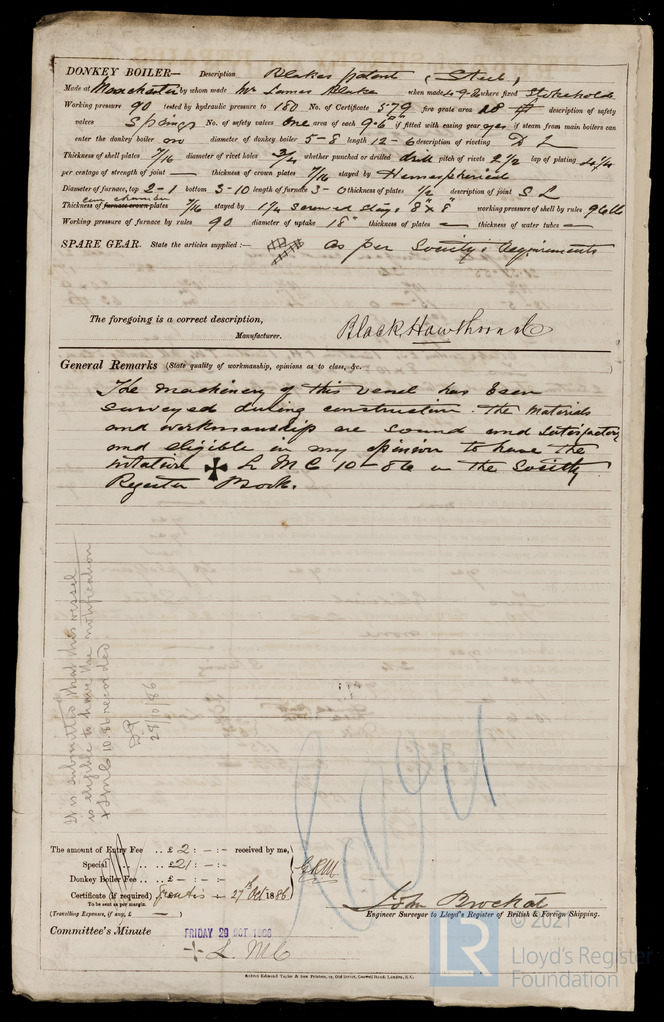 DONKEY BOILER— Description Blakes patent (Steel)
Made at Manchester by whom made Mr James Blake when made 4-9-82 where fixed Stokehold
Working pressure 90 tested by hydraulic pressure to 180 No. of Certificate 579 fire grate area 18 description of safety
valves Springs No. of safety valves one area of each 9·6 if fitted with easing gear yes if steam from main boilers can
enter the donkey boiler no diameter of donkey boiler 5-8 length 12-6 description of riveting D L
Thickness of shell plates 7/16 diameter of rivet holes 3/4 whether punched or drilled drill pitch of rivets 2 1/2 lap of plating 4 1/4
per centage of strength of joint — thickness of crown plates 7/16 stayed by Hemespherical
Diameter of furnace, top 2-1 bottom 3-10 length of furnace 3-0 thickness of plates 1/2 description of joint S L
Thickness of furnace crown plates chamber 7/16 stayed by 1 1/4 screwed stays 8" x 8" working pressure of shell by rules 96 lb
Working pressure of furnace by rules 90 diameter of uptake 18" thickness of plates — thickness of water tubes —
SPARE GEAR. State the articles supplied:— as per Society's Requirements
The foregoing is a correct description,
Manufacturer. Black Hawthorn & Co
General Remarks (State quality of workmanship, opinions as to class, &c.
The machinery of this vessel has been
surveyed during construction. The Materials
and workmanship are sound and satisfactory
and eligible in my opinion to have the
notation ✠ L M C 10-86 in the Society
Register Book.
It is submitted that this vessel
is eligible to have the notification
+ LMC 10.86 recorded
28/10/86
The amount of Entry Fee .. £ 2 : - : - received by me,
Special .. .. £ 21 : - : -
Donkey Boiler Fee .. £ - : - : -
Certificate (if required) Gratis 27th Oct 1886
To be sent as per margin.
(Travelling Expenses, if any, £ — )
John Brockat
Engineer Surveyor to Lloyd's Register of British & Foreign Shipping.
Committee's Minute FRIDAY 29 OCT 1886
+ L. M C
© 2021
LR
Lloyd's Register
Foundation